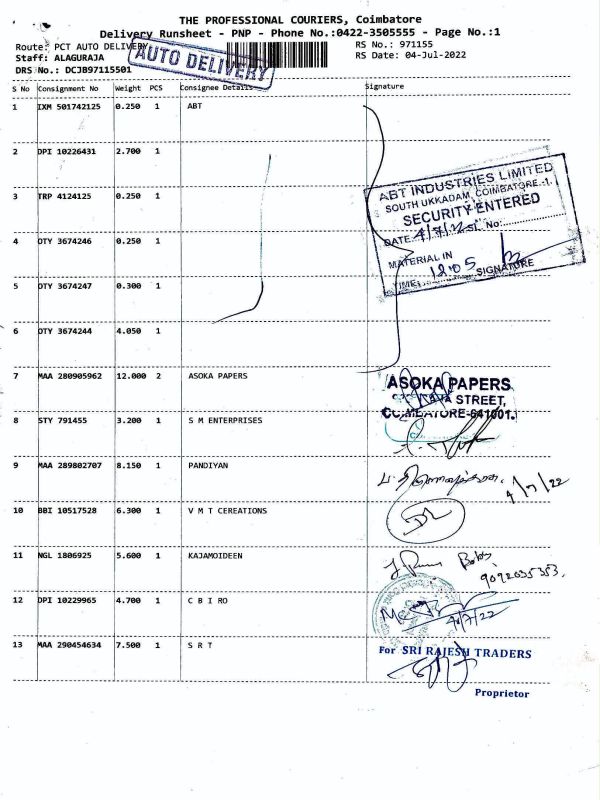 THE PROFESSIONAL COURIERS, Coimbatore
Delivery Runsheet - PNP - Phone No.:0422-3505555 - Page No.:1
Route: PCT AUTO DELIVERY
RS No.: 971155
Staff: ALAGURAJA
RS Date: 04-Jul-2022
DRS No.: DCJB97115501
AUTO DELIVERY
S No Consignment No Weight PCS Consignee Details Signature
1 IXM 501742125 0.250 1 ABT
2 DPI 10226431 2.700 1
3 TRP 4124125 0.250 1
4 OTY 3674246 0.250 1
5 OTY 3674247 0.300 1
6 OTY 3674244 4.050 1
ABT INDUSTRIES LIMITED
SOUTH UKKADAM, COIMBATORE-1.
SECURITY ENTERED
DATE 4/7/22 No:
MATERIAL IN
TIME: 12.05 SIGNATURE
7 MAA 280905962 12.000 2 ASOKA PAPERS
ASOKA PAPERS
STREET,
COIMBATORE-641001.
8 STY 791455 3.200 1 S M ENTERPRISES
9 MAA 289802707 8.150 1 PANDIYAN
4/7/22
10 BBI 10517528 6.300 1 V M T CEREATIONS
11 NGL 1806925 5.600 1 KAJAMOIDEEN
9092035353.
12 DPI 10229965 4.700 1 C B I RO
4/7/22
13 MAA 290454634 7.500 1 S R T
For SRI RAJESH TRADERS
Proprietor